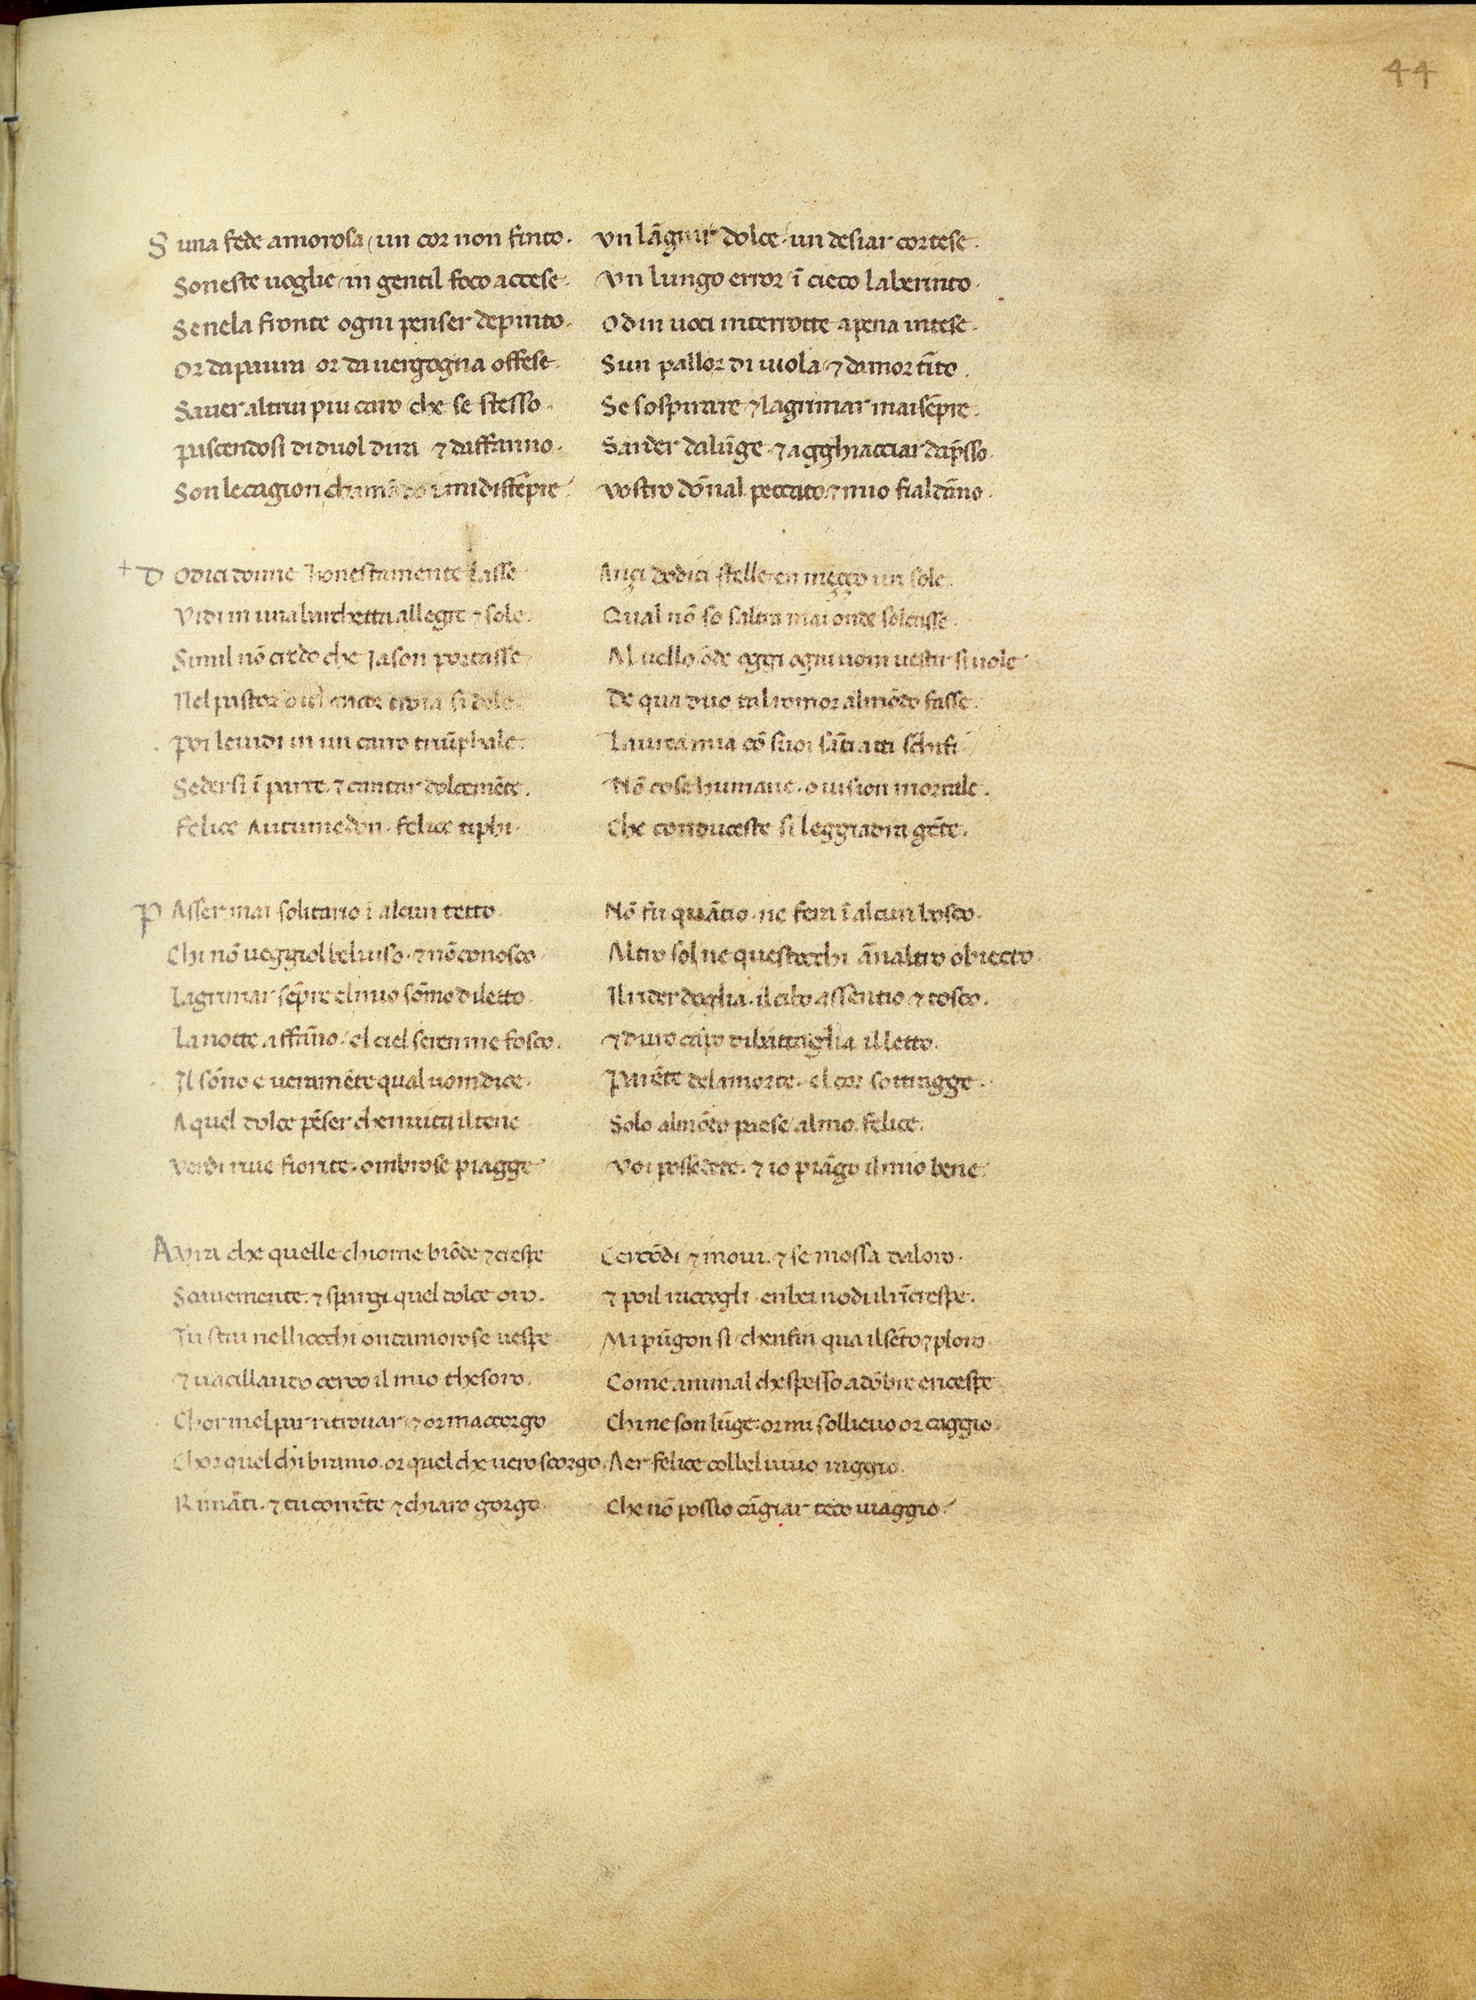 44
S una fede amorosa / un cor non finto. Vn lāguir dolce / un desiar cortese.
Soneste uoglie / in gentil foco accese. Vn lungo error / ī cieco laberinto.
Se nela fronte ogni penser depinto. Od in uoci interrotte apena intese.
Or da paura or da uergogna offese. Sun pallor di uiola / ⁊ damor tīto.
Sauer altrui piu caro che se stesso. Se sospirare ⁊ lagrimar mai sēpre.
Pascendosi di duol dira ⁊ daffanno. Sarder da lūge. ⁊ agghiacciar da p̄sso.
Son le cagion chamādo i mi distēpre / Vostro dōna l peccato. ⁊ mio fia l dāno.
D Odici donne honestamente lasse Anzi dodici stelle. en mezzo un sole.
Vidi in una barchetta allegre ⁊ sole. Qual nō so saltra mai onde solcasse.
Simil nō credo che Jason portasse Al uello ōde oggi ogni uom uestir si uole
Nel pastor di che ancor troia si dole. De qua duo tal romor al mōdo fasse.
Poi le uidi in un carro triūphale. Laurea mia cō suoi sāti atti schifi
Sedersi ī parte. ⁊ cantar dolcemēte. Nō cose humane. o uision mortale.
Felice Autumedon. felice tiphi. Che conduceste si leggiadra gēte.
P Asser mai solitario ī alcun tetto Nō fu quātio. ne fera ī alcun bosco.
Chi nō ueggio l bel uiso. ⁊ nō conosco Altro sol. ne questocchi ān altro obiecto.
Lagrimar sēpre el mio sōmo diletto. Il rider doglia. il cibo assentio ⁊ tosco.
La notte affāno. el ciel seren me fosco. ⁊ duro cāpo di battaglia il letto.
Il sōno e ueramēte qual uom dice. Parēte dela morte. el cor sottragge.
A quel dolce pēser che nuita il tene Solo al mōdo paese almo. felice.
Verdi riue fiorite. ombrose piagge Voi possedete. ⁊ io piāgo il mio bene.
Aura che quelle chiome biōde ⁊ crespe Cercōdi ⁊ moui. ⁊ se mossa daloro.
Soauemente. ⁊ spargi quel dolce oro. ⁊ poi l raccogli. en bei nodi il rīcrespe.
Tu stai nelliocchi ondamorose uespe Mi pūgon si / chenfin qua il sēto ⁊ ploro.
⁊ uacillando cerco il mio thesoro. Come animal che spesso adōbre encespe
Chor mel par ritrouar. ⁊ or maccorgo Chi ne son lūge. or mi solleuo or caggio.
Chor quel chi bramo. or quel che uero scorgo. Aer felice col bel uiuo raggio.
Rimāti. ⁊ tu corrēte ⁊ chiaro gorgo. Che nō possio cāgiar teco uiaggio.